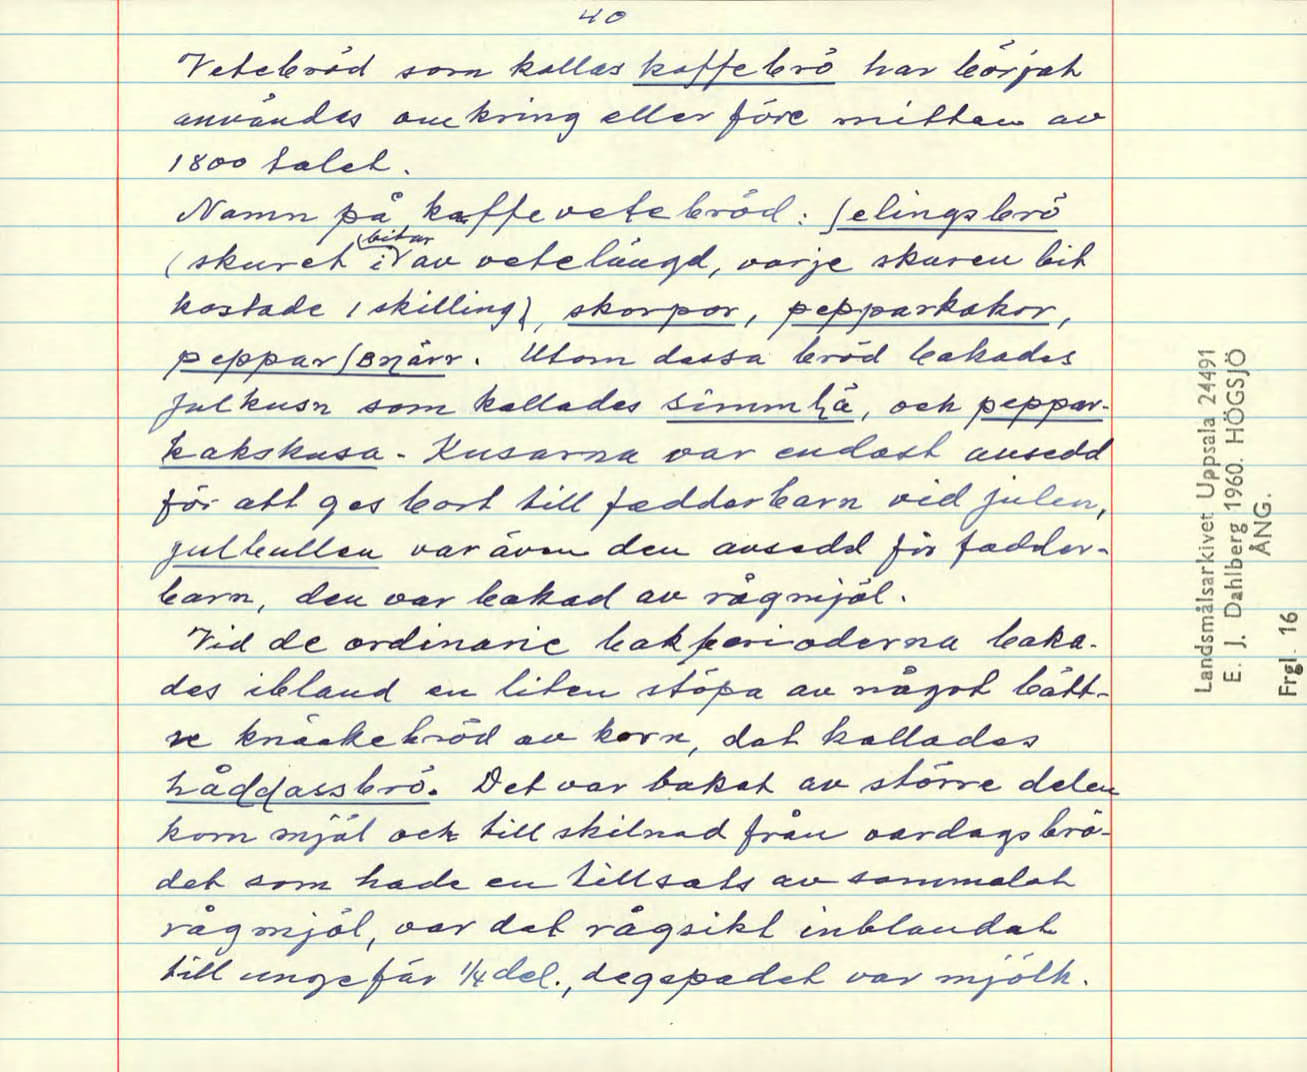 40
Vetebröd som kallas kaffebrö har börjat
användas omkring eller före mitten av
1800 talet.
Namn på kaffevetebröd: ʃelingsbrö
(skuret i bitar av vetelängd, varje skuren bit
kostade 1 skilling), skorpor, pepparkakor,
peppar
. Utom dessa bröd bakades
julkusn som kallades
, och peppar-
kakskusa - Kusarna var endast ansedd
för att ges bort till fadderbarn vid julen,
julbullen var även den avsedd för fadder-
barn, den var bakad av rågmjöl.
Vid de ordinarie bakperioderna baka-
des ibland en liten stöpa av något bätt-
re knäckebröd av korn, det kallades
. Det var bakat av större delen
korn mjöl och till skilnad från vardagsbrö-
det som hade en tillsats av sammalat
rågmjöl, var det rågsikt inblandat
till ungefär 1/4 del., degspadet var mjölk.
Landsmålsarkivet Uppsala 24491
E. J. Dahlberg 1960. HÖGSJÖ
ÅNG.
Frgl. 16